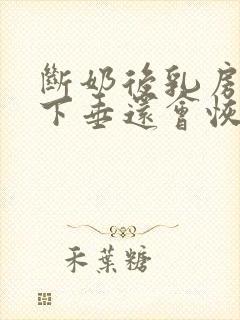 斷奶後乳房
下垂還會恢
禾葉糖